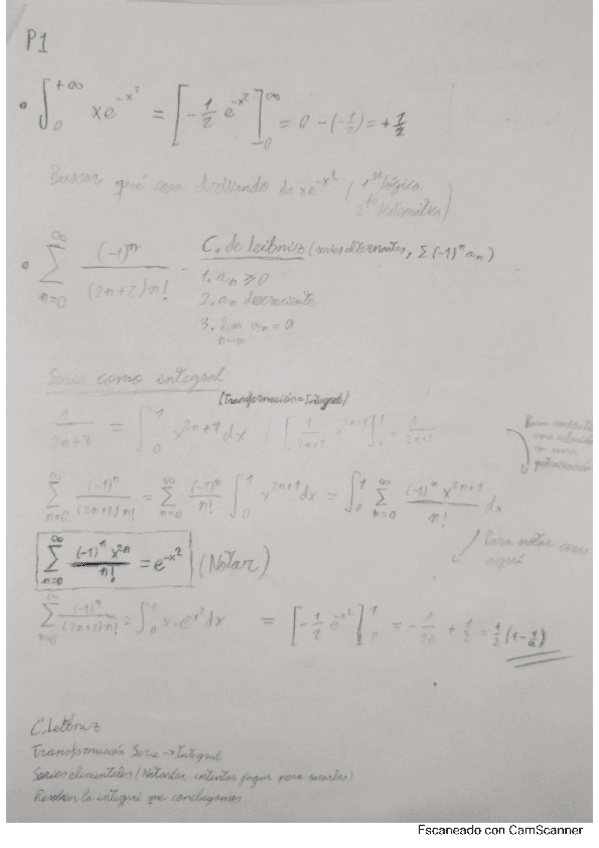 P1
∫₀^{+∞} xe^{-x²} = [-1/2 e^{-x²}]₀^∞ = 0 - (-1/2) = +1/2
Buscar qué cosa derivando da xe^{-x²} (1º lógica
2º Matemática)
∑_{n=0}^{∞} (-1)^n / (2n+2)n!
C. de Leibniz (series alternantes, ∑(-1)^n a_n)
1. a_n ≥ 0
2. a_n decreciente
3. lim_{n→∞} a_n = 0
Serie como integral
(Transformación Integral)
1/(2n+2) = ∫₀¹ x^{2n+1} dx / [1/(2n+2) x^{2n+2}]₀¹ = 1/(2n+2)
Para
una
en
∑_{n=0}^{∞} (-1)^n / (2n+2)n! = ∑_{n=0}^{∞} (-1)^n/n! ∫₀¹ x^{2n+1} dx = ∫₀¹ ∑_{n=0}^{∞} (-1)^n x^{2n+1} / n! dx
∑_{n=0}^{∞} (-1)^n x^{2n} / n! = e^{-x²} (Notar)
Para notar como
aquí
∑_{n=0}^{∞} (-1)^n / (2n+2)n! = ∫₀¹ x·e^{-x²} dx = [-1/2 e^{-x²}]₀¹ = -1/2e + 1/2 = 1/2 (1 - 1/e)
C. Leibniz
Transformación Serie → Integral
Series elementales (Notarlas, intentar jugar para sacarlas)
Resolver la integral que concluyamos
Escaneado con CamScanner